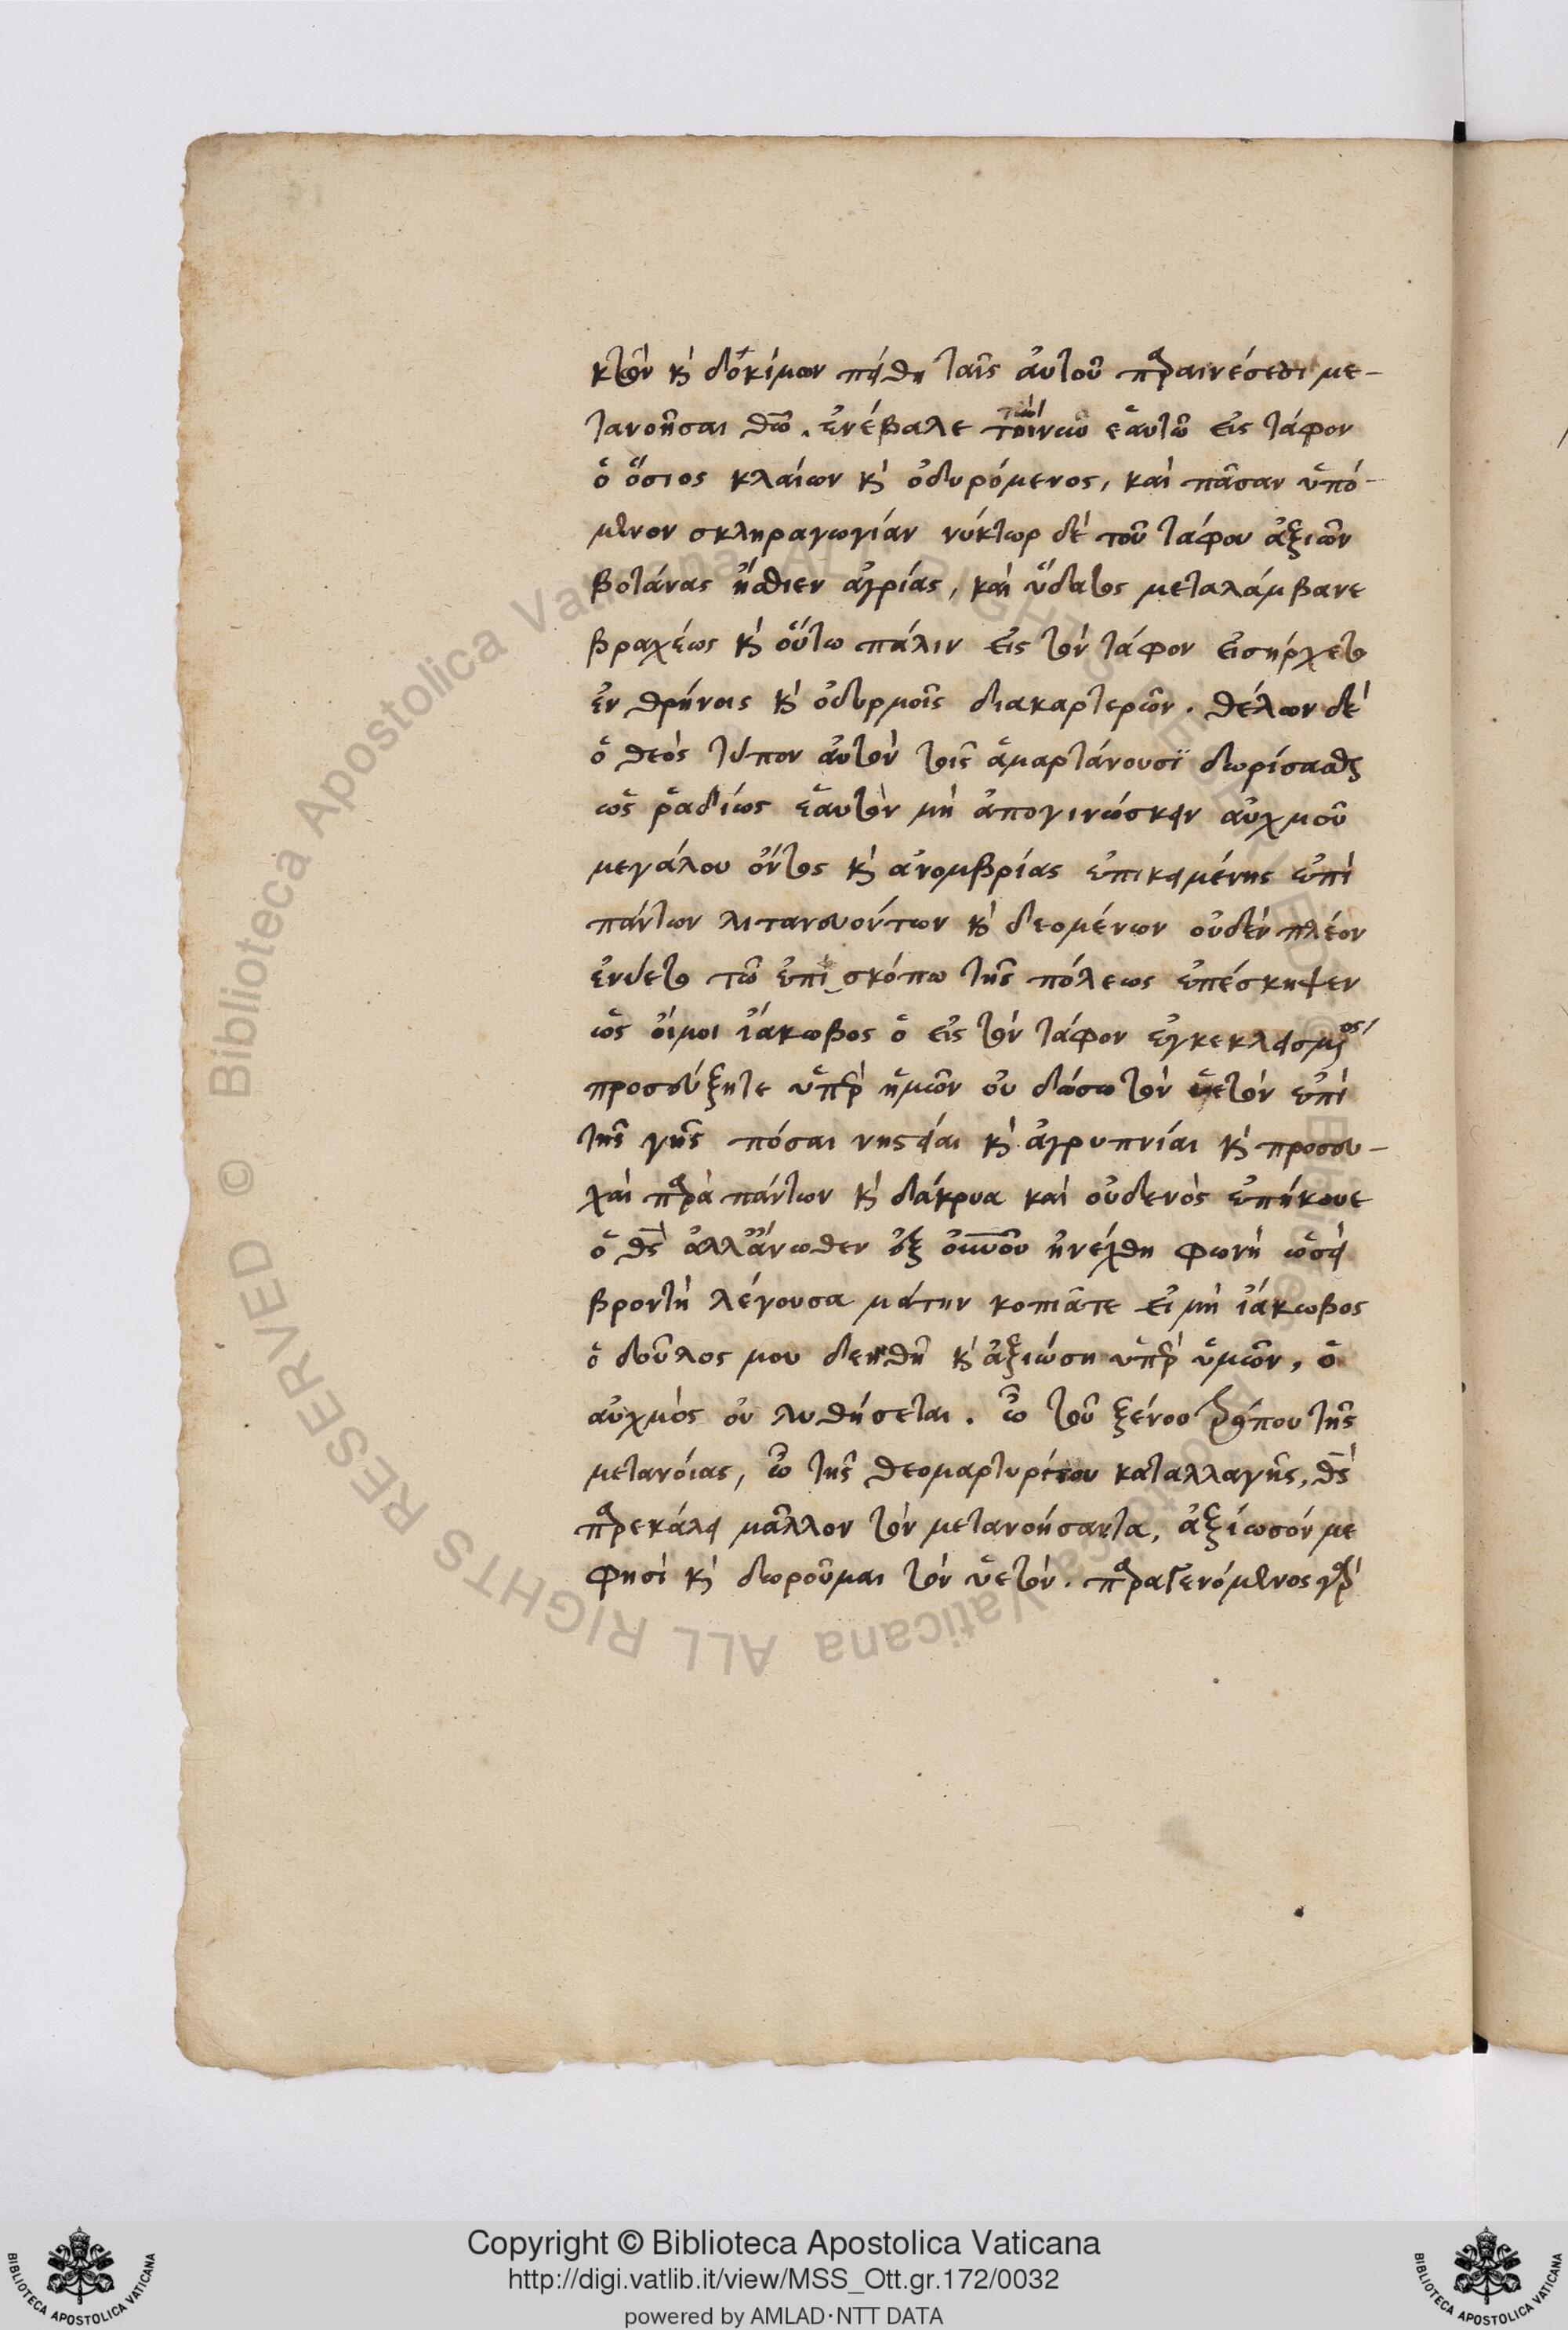 κτὸν κὶ δόκίμων πείθη ταῖς ἀυτοῦ πραινέσεσι με-
τανοῆσαι θῶ. ἐνέβαλε εἁυτῶ εἰς τάφον
ὁ ὅσιος κλαίων κὶ ὀδυρόμενος, και πᾶσαν ὑπό-
μενον σκληραγωγιάν νύκτωρ δὲ τοῦ τάφου ἀξιῶν
βοτάνας ἤσθιεν ἀγρίας, και ὕδατος μεταλάμβανε
βραχέως κὶ οὕτω πάλιν εἰς τὸν τάφον εἰσήρχετο
ἐν θρήνοις κὶ ὀδυρμοῖς διακαρτερῶν. θέλων δὲ
ὁ θεὸς τύπον ἀυτὸν τοῖς ἁμαρτάνουσϊ δωρίσασθαι
ὡς ῥαδίως εἁυτὸν μὴ ἀπογινώσκειν αὐχμοῦ
μεγάλου ὄντος κὶ ἀνομβρίας ἐπικειμένης ἐπὶ
πάντων λιτανευόντων κὶ δεομένων οὐδὲν πλέον
ἐνδετο τῶ ἐπι σκόπω τῆς πόλεως ἐπέσκηψεν
ὡς οἴμοι ἰάκωβος ὁ εἰς τὸν τάφον ἐγκεκλεισμένος
προσεύξητε ὑπὲρ ἡμῶν οὐ δώσω τὸν ὑετὸν ἐπὶ
τῆς γῆς πόσαι νηστείαι κὶ ἀγρυπνίαι κὶ προσευ-
χαὶ παρὰ πάντων κὶ δάκρυα καὶ οὐδενὸς ἐπήκουε
ὁ θς ἀλλἄνωθεν ἐξ οὐνοῦ ἠνέχθη φωνὴ ὡσεὶ
βροντὴ λέγουσα μάτην κοπιᾶτε εἰ μὴ ἰάκωβος
ὁ δοῦλος μου δεηθῆ κὶ ἀξιώση ὑπὲρ ὑμῶν, ὁ
αὐχμὸς οὐ λυθήσεται. ὢ τοῦ ξένου τρόπου τῆς
μετανόιας, ὢ τῆς καταλλαγῆς, θς
παρεκάλει μᾶλλον τὸν μετανοήσαντα, ἀξίωσόν με
φησὶ κὶ δωροῦμαι τὸν ὑετὸν. παραγενόμενος γὰρ
Copyright © Biblioteca Apostolica Vaticana
http://digi.vatlib.it/view/MSS_Ott.gr.172/0032
powered by AMLAD·NTT DATA